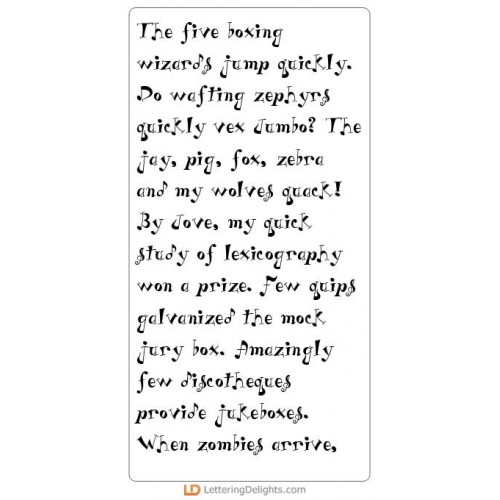 The five boxing
wizards jump quickly.
Do wafting zephyrs
quickly vex Jumbo? The
jay, pig, fox, zebra
and my wolves quack!
By Jove, my quick
study of lexicography
won a prize. Few quips
galvanized the mock
jury box. Amazingly
few discotheques
provide jukeboxes.
When zombies arrive,
LD LetteringDelights.com